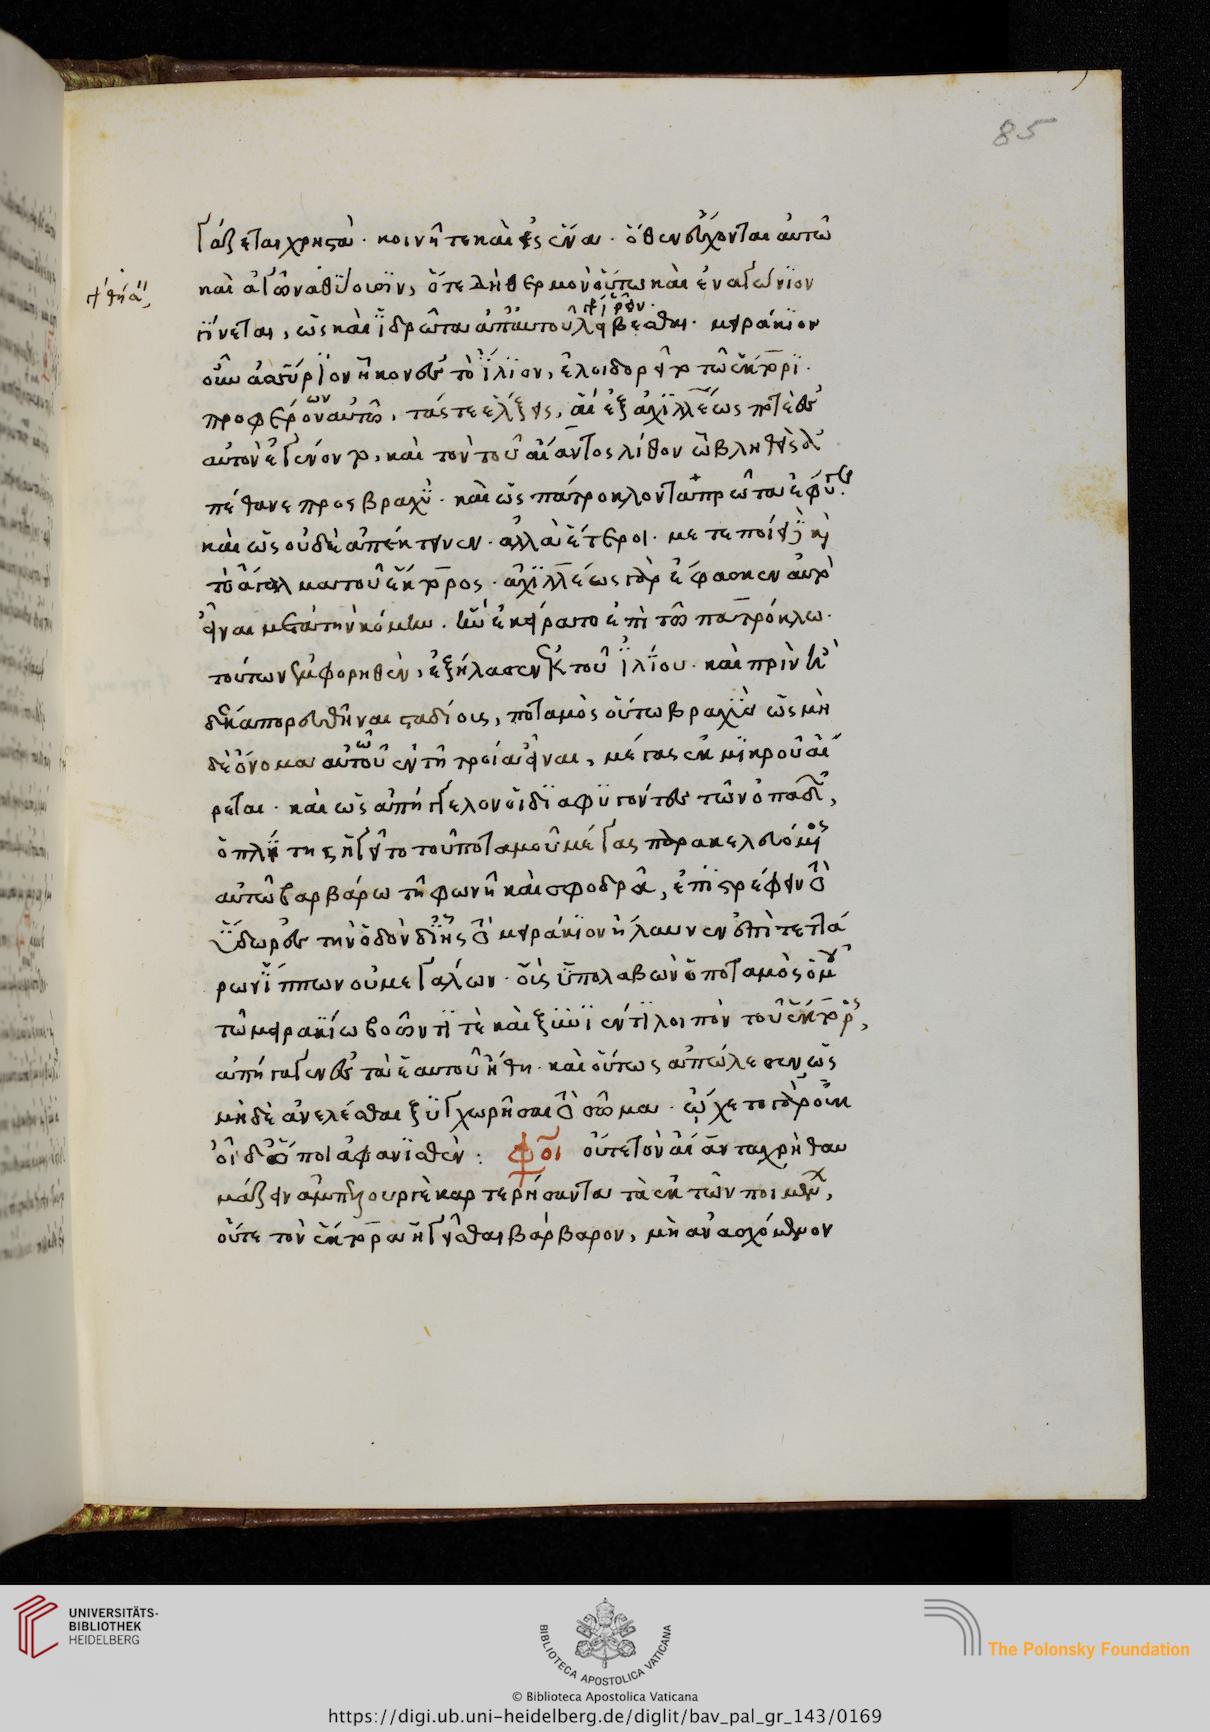 85
γάζεται χρηστά· κοινῇ τε καὶ ἐς ἕνα· ὅθεν εὔχονται αὐτῷ
καὶ ἀγῶνα θύουσιν, ὅτε δὴ θερμὸν οὕτω καὶ ἐναγώνιον
γίνεται, ὡς καὶ ἱδρῶτα ἀπ' αὐτοῦ λείβεσθαι· μειράκιον
οὖν ἀσσύριον ἧκον ἐς τὸ ἴλιον, ἐλοιδορεῖτο τῷ ἕκτορι·
προφέρον αὐτῷ, τάς τε ἕλξεις, αἳ ἐξ ἀχιλλέως ποτὲ ἐς
αὐτὸν ἐγένοντο, καὶ τὸν τοῦ αἴαντος λίθον ᾧ βληθεὶς ἀ
πέθανε πρὸς βραχύ· καὶ ὡς πάτροκλον τὰ πρῶτα ἔφυγε·
καὶ ὡς οὐδὲ ἀπέκτεινεν· ἀλλὰ ἕτεροι· μετεποίει δὲ καὶ
τὸ ἄγαλμα τοῦ ἕκτορος· ἀχιλλέως γὰρ ἔφασκεν αὐτὸ
εἶναι μετὰ τὴν κόμην· ἣν ἐκείρατο ἐπὶ τῷ πατρόκλῳ·
τούτων ἐμφορηθὲν, ἐξήλασεν ἐκ τοῦ ἰλίου· καὶ πρὶν ἢ
δέκα πορευθῆναι σταδίους, ποταμὸς οὕτω βραχὺς ὡς μη
δὲ ὄνομα αὐτοῦ ἐν τῇ τροίᾳ εἶναι, μέγας ἐκ μικροῦ αἴ
ρεται· καὶ ὡς ἀπήγγελον οἱ διαφυγόντες τῶν ὀπαδῶν,
ὁπλίτης ἡγεῖτο τοῦ ποταμοῦ μέγας παρακελευόμενος
αὐτῷ βαρβάρῳ τῇ φωνῇ καὶ σφοδρᾷ, ἐπιστρέφειν τὸ
ὕδωρ ἐς τὴν ὁδὸν δι' ἧς τὸ μειράκιον ἤλαυνεν ἐπὶ τεττά
ρων ἵππων οὐ μεγάλων· οἷς ὑπολαβὼν ὁ ποταμὸς ὁμοῦ
τῷ μειρακίῳ βοῶντί τε καὶ ξυνιέντι λοιπὸν τοῦ ἕκτορος,
ἀπήγαγεν ἐς τὰ ἑαυτοῦ ἤθη· καὶ οὕτως ἀπώλεσεν ὡς
μηδὲ ἀνελέσθαι ξυγχωρῆσαι τὸ σῶμα· ᾤχετο γὰρ οὐκ
οἶδ' ὅποι ἀφανισθέν: φοῖ οὔτε τὸν αἴαντα χρὴ θαυ
μάζειν ἀμπελουργὲ καρτερήσαντα τὰ ἐκ τῶν ποιμένων,
οὔτε τὸν ἕκτορα ἡγεῖσθαι βάρβαρον, μὴ ἀνασχόμενον
UNIVERSITÄTS-
BIBLIOTHEK
HEIDELBERG
BIBLIOTECA APOSTOLICA VATICANA
The Polonsky Foundation
© Biblioteca Apostolica Vaticana
https://digi.ub.uni-heidelberg.de/diglit/bav_pal_gr_143/0169